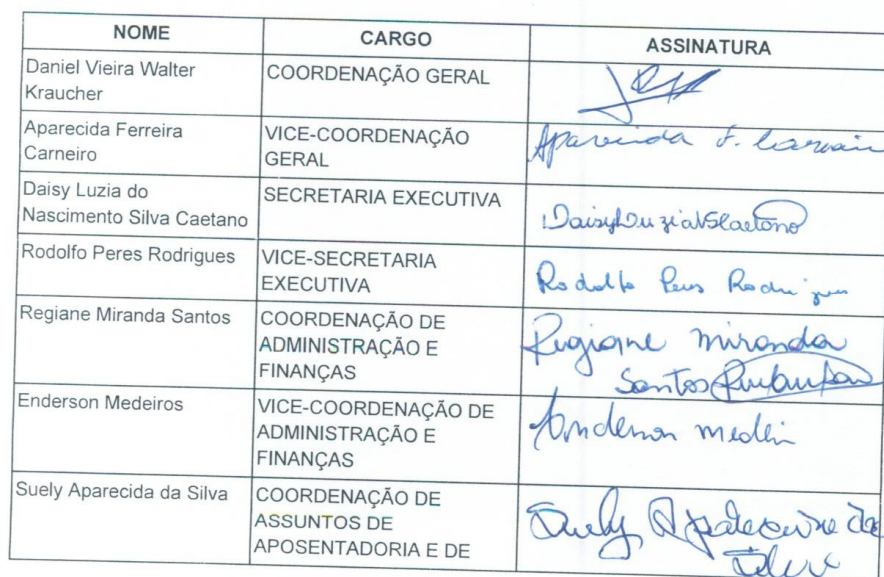 NOME CARGO ASSINATURA
Daniel Vieira Walter
Kraucher
COORDENAÇÃO GERAL
Aparecida Ferreira
Carneiro
VICE-COORDENAÇÃO
GERAL
Aparecida F. Carneiro
Daisy Luzia do
Nascimento Silva Caetano
SECRETARIA EXECUTIVA
DaisyLuziaNSCaetano
Rodolfo Peres Rodrigues
VICE-SECRETARIA
EXECUTIVA
Rodolfo Peres Rodrigues
Regiane Miranda Santos
COORDENAÇÃO DE
ADMINISTRAÇÃO E
FINANÇAS
Regiane Miranda
Santos
Enderson Medeiros
VICE-COORDENAÇÃO DE
ADMINISTRAÇÃO E
FINANÇAS
Suely Aparecida da Silva
COORDENAÇÃO DE
ASSUNTOS DE
APOSENTADORIA E DE
Suely Aparecida da
Silva